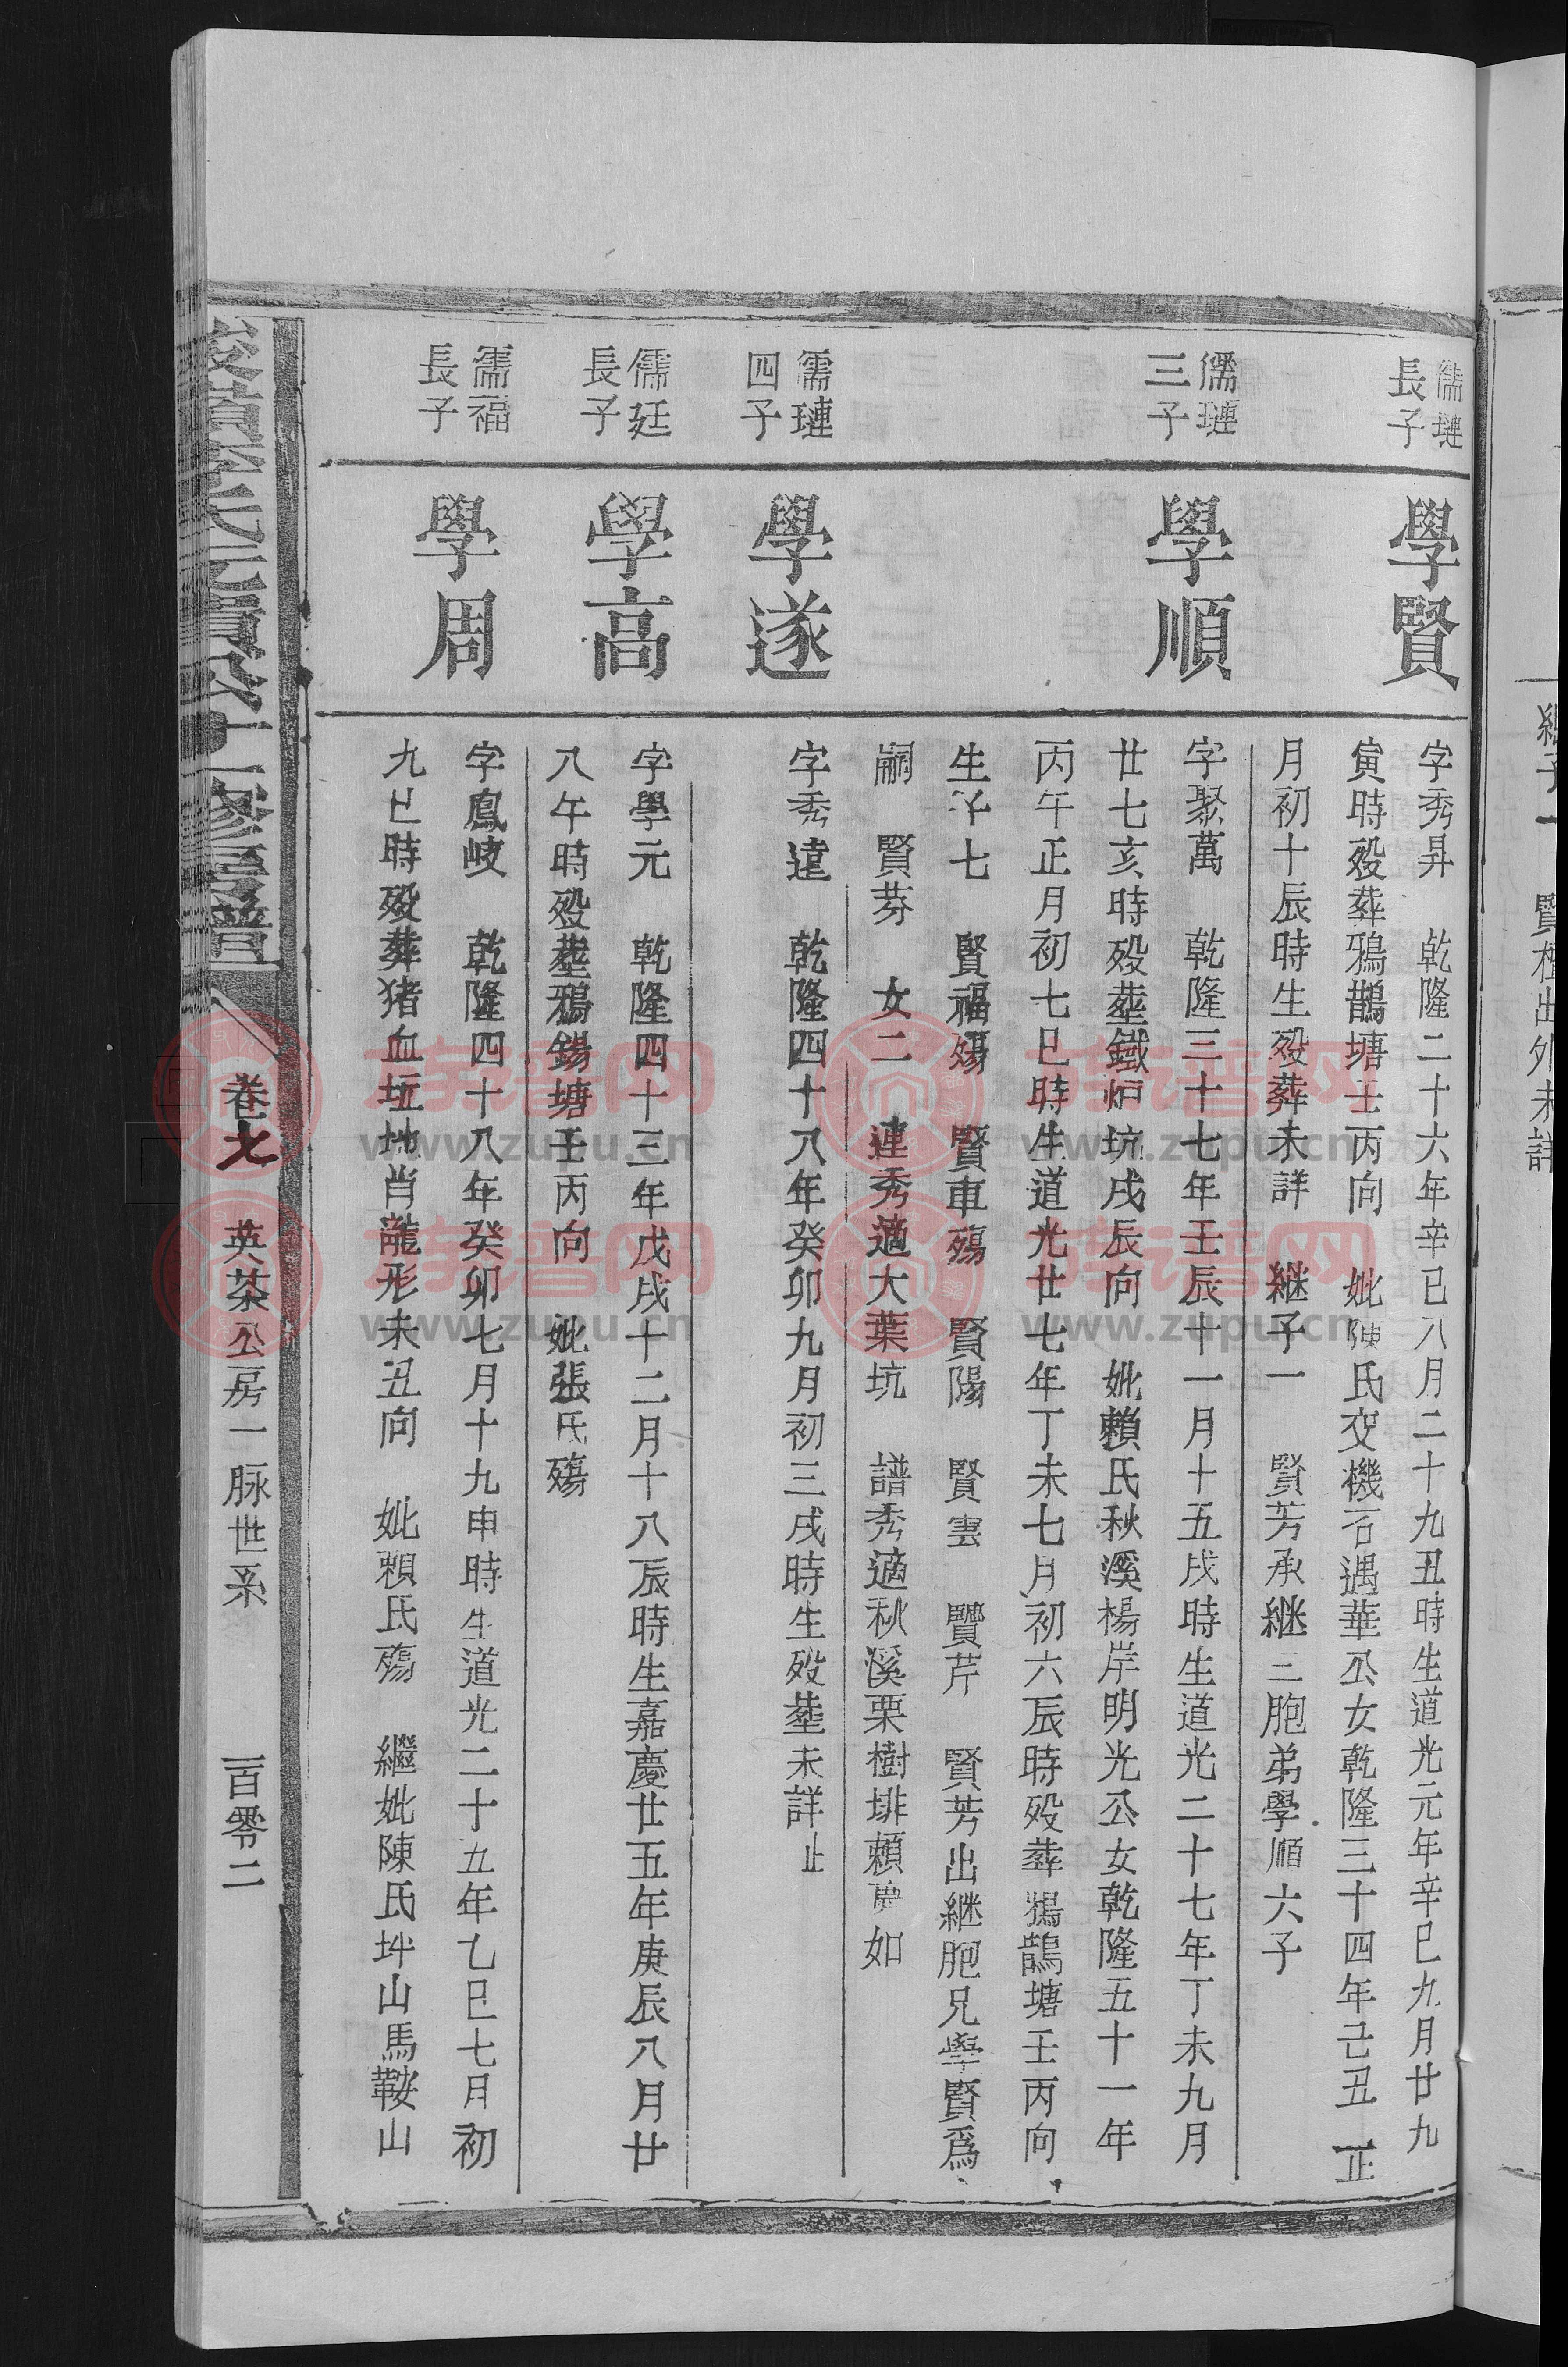 繼子一 賢檀出外未詳
儒璉
長子
學賢
字秀昇 乾隆二十六年辛巳八月二十九丑時生道光元年辛巳九月廿九
寅時殁葬鴉鵲塘壬丙向 妣陳氏交機石遇華公女乾隆三十四年己丑正
月初十辰時生殁葬未詳 継子一 賢芳承継三胞弟學順六子
儒璉
三子
學順
字聚萬 乾隆三十七年壬辰十一月十五戌時生道光二十七年丁未九月
廿七亥時殁塟鐵炉坑戌辰向 妣賴氏秋溪楊岸明光公女乾隆五十一年
丙午正月初七巳時生道光廿七年丁未七月初六辰時殁葬鴉鵲塘壬丙向
生子七 賢福殤 賢車殤 賢陽 賢雲 賢芹 賢芳出継胞兄學賢爲
嗣 賢芬 女二 連秀適大葉坑 譜秀適秋溪栗樹排賴夢如
儒璉
四子
學遂
字秀達 乾隆四十八年癸卯九月初三戌時生殁塟未詳止
儒廷
長子
學高
字學元 乾隆四十三年戊戌十二月十八辰時生嘉慶廿五年庚辰八月廿
八午時殁塟鴉鵲塘壬丙向 妣張氏殤
儒福
長子
學周
字鳳岐 乾隆四十八年癸卯七月十九申時生道光二十五年乙巳七月初
九巳時殁葬猪血坵坳肖龍形未丑向 妣賴氏殤 繼妣陳氏坪山馬鞍山
氏 公十一修房譜
卷之 英茶公房一脉世系 一百零二
族谱网
www.zupu.cn
族谱网
www.zupu.cn
族谱网
www.zupu.cn
族谱网
www.zupu.cn